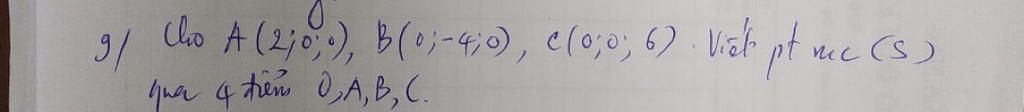 g/ Cho A(2;0;0), B(0;-4;0), C(0;0;6). Viết pt mc (S)
qua 4 điểm O,A,B,C.